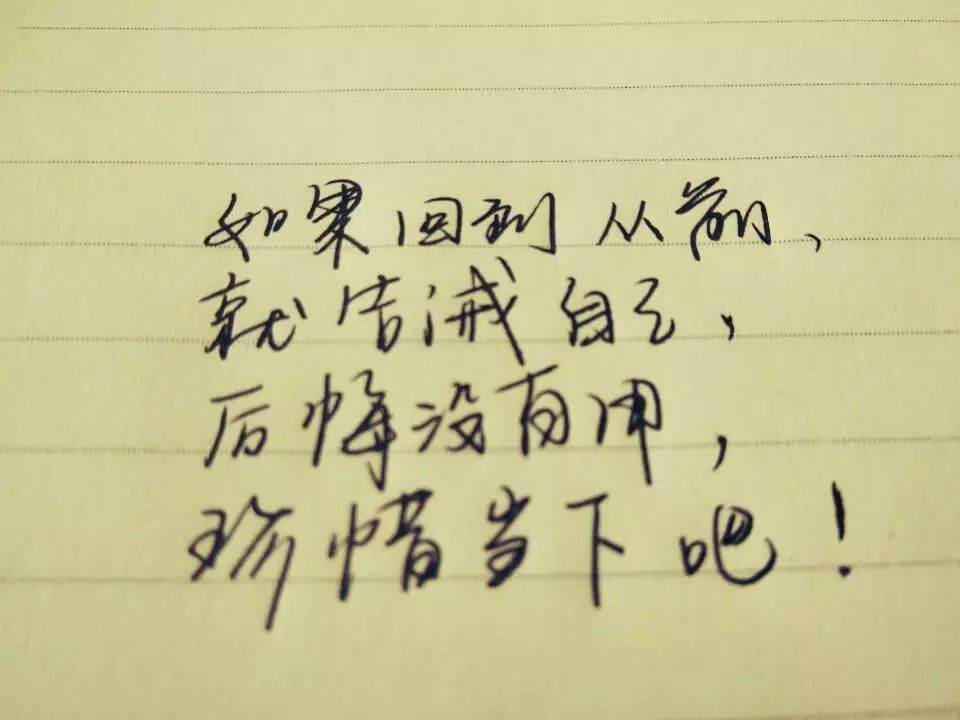 如果回到从前、
就告诫自己，
后悔没有用，
珍惜当下吧！